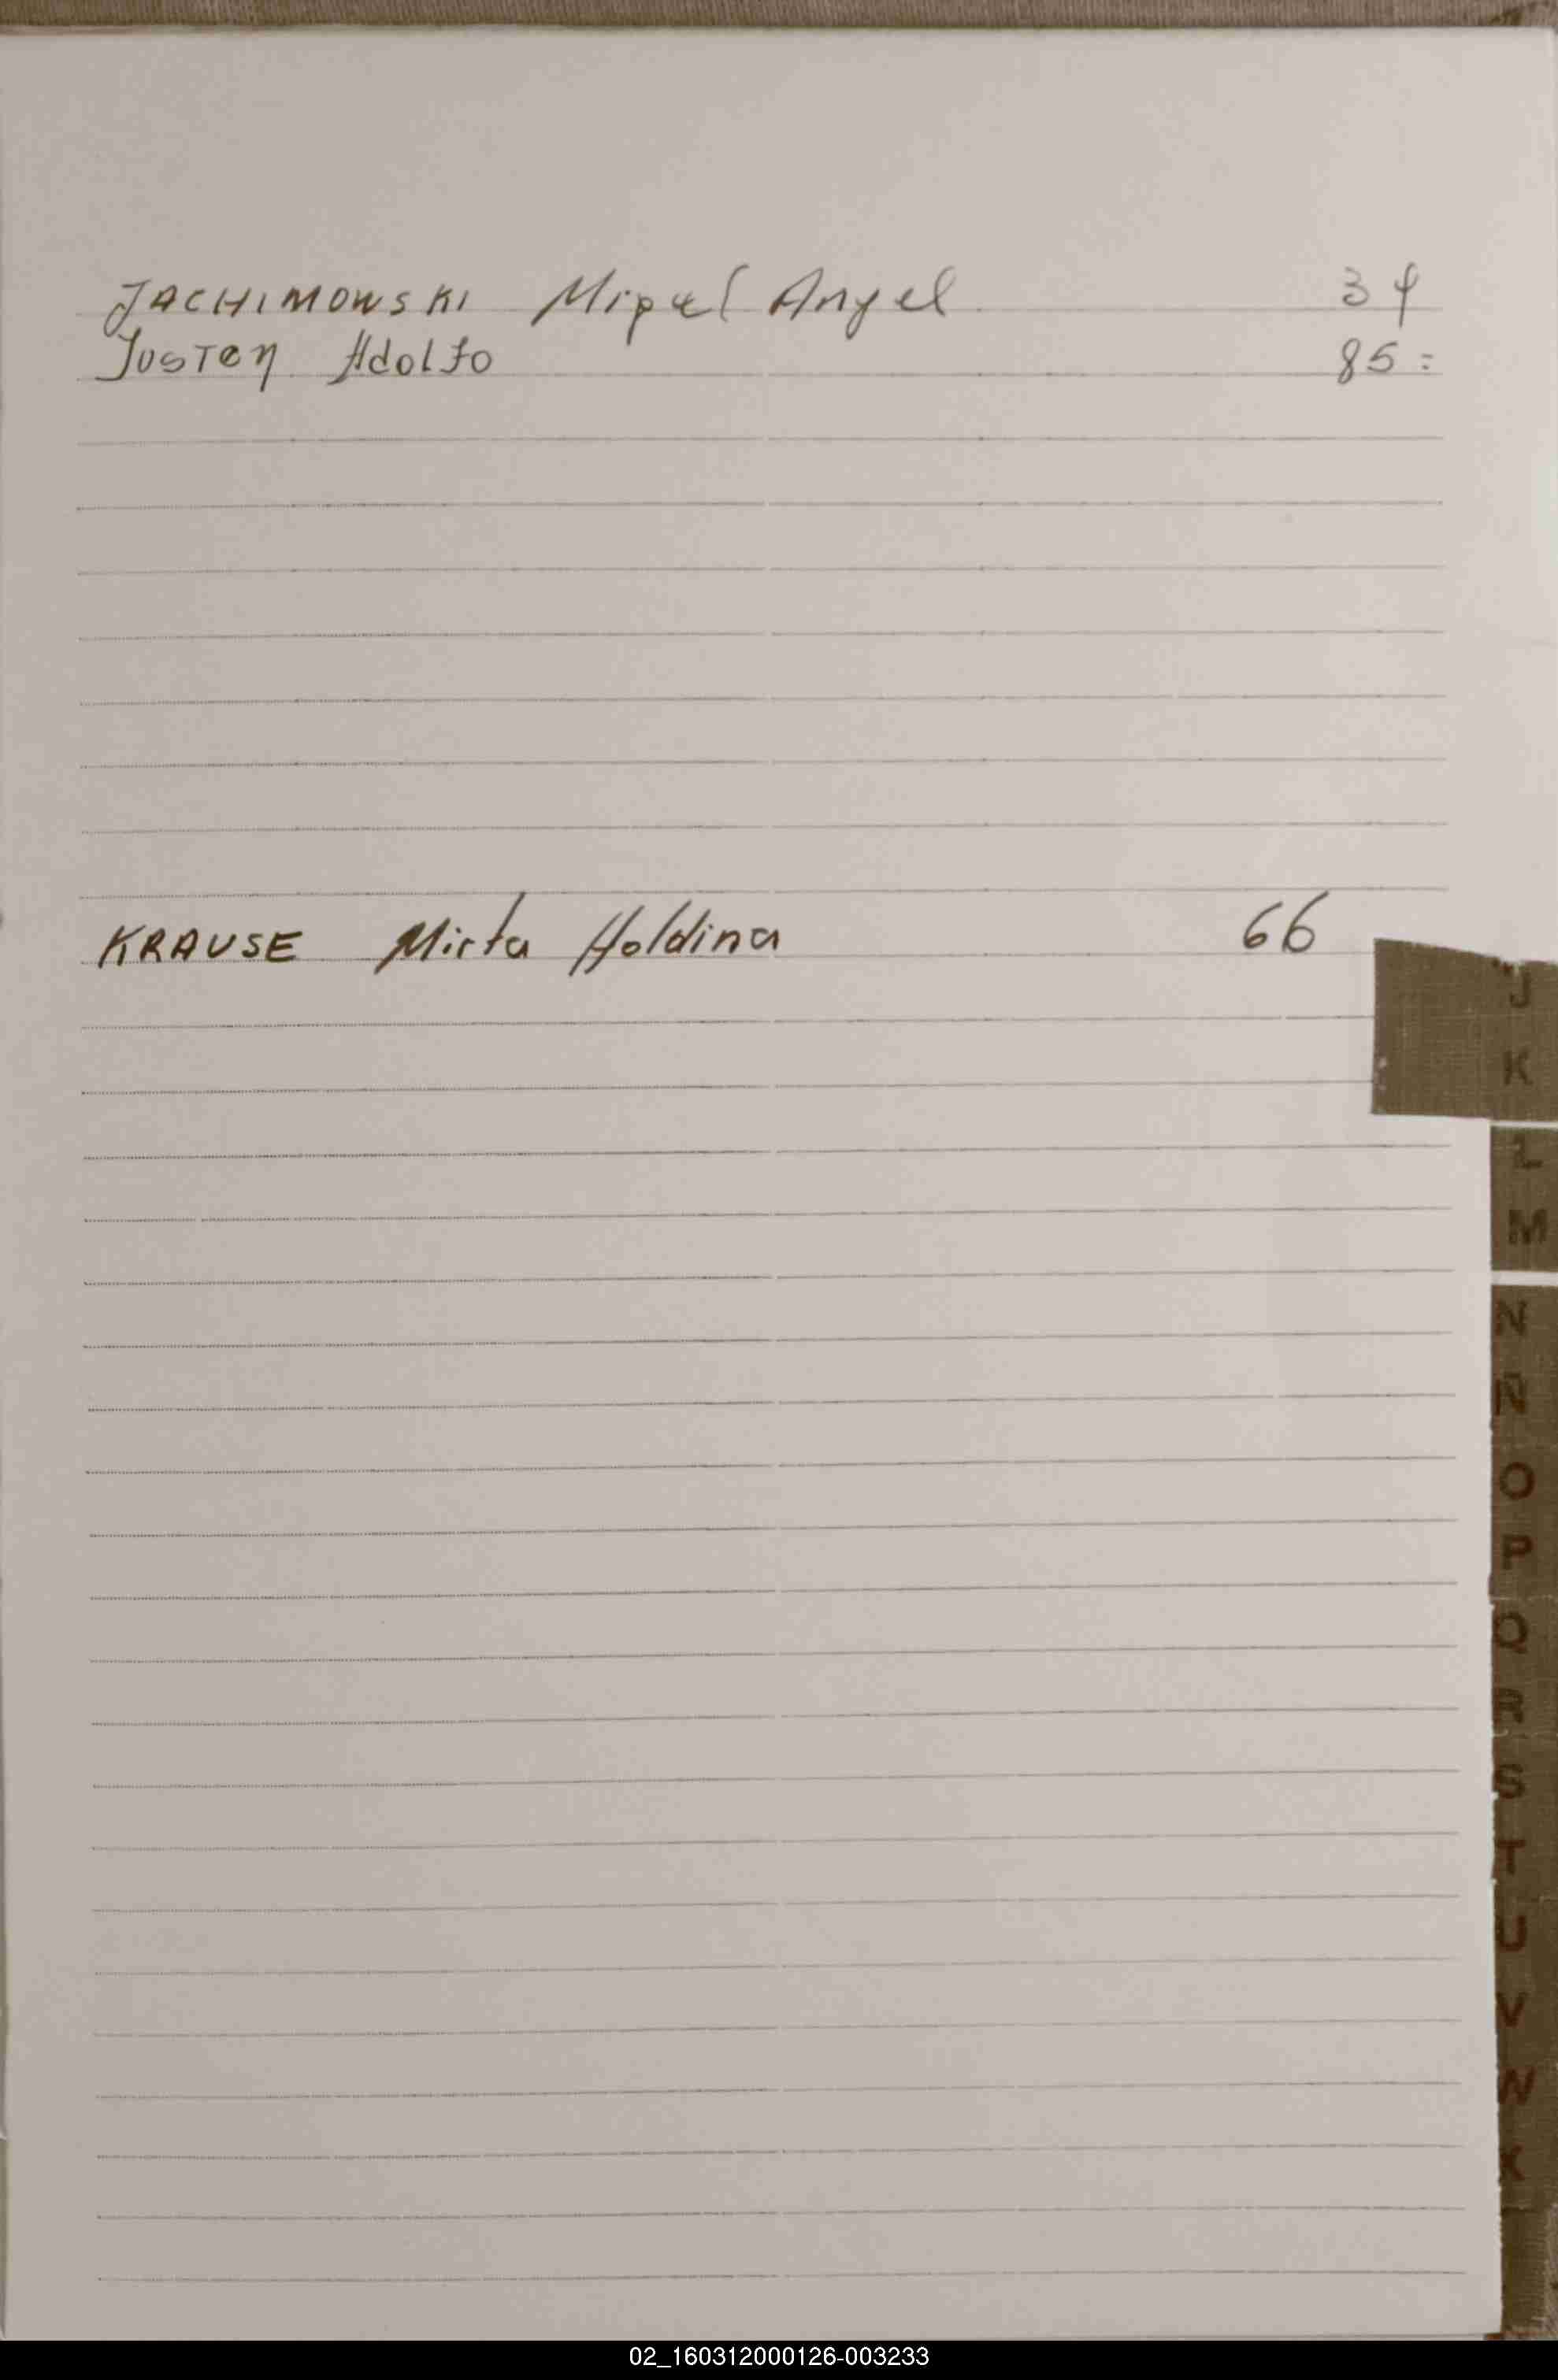 JACHIMOWSKI Miguel Angel 34
Justen Adolfo 85=
KRAUSE Mirta Holdina 66
J
K
L
M
N
Ñ
O
P
Q
R
S
T
U
V
W
X
02_160312000126-003233